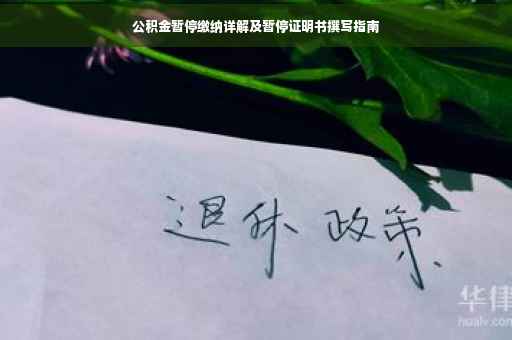 公积金暂停缴纳详解及暂停证明书撰写指南
退休 政策
华律
hualv.com